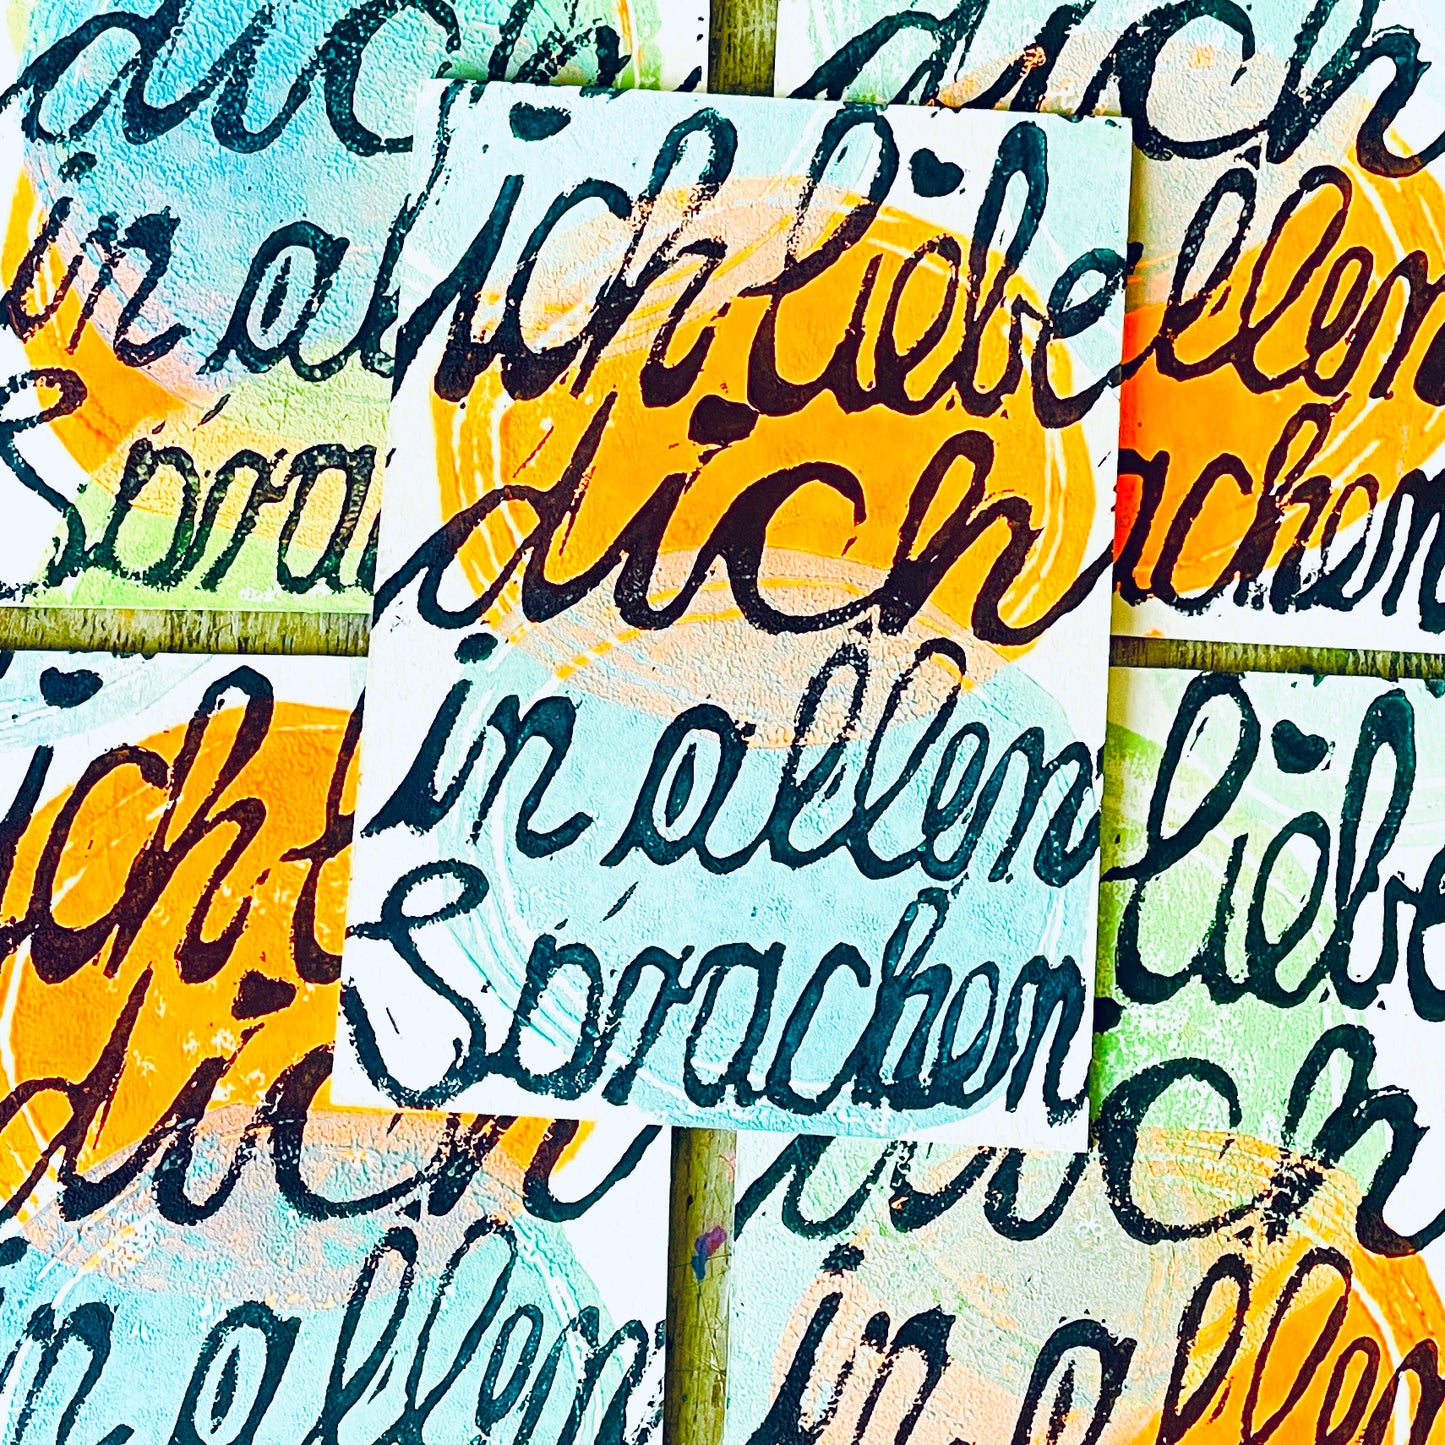 dich
in al
Spra
dich
allen
achen
ich liebe
dich
in allen
Sprachen
ich l
dich
in allen
liebe
dich
in allen